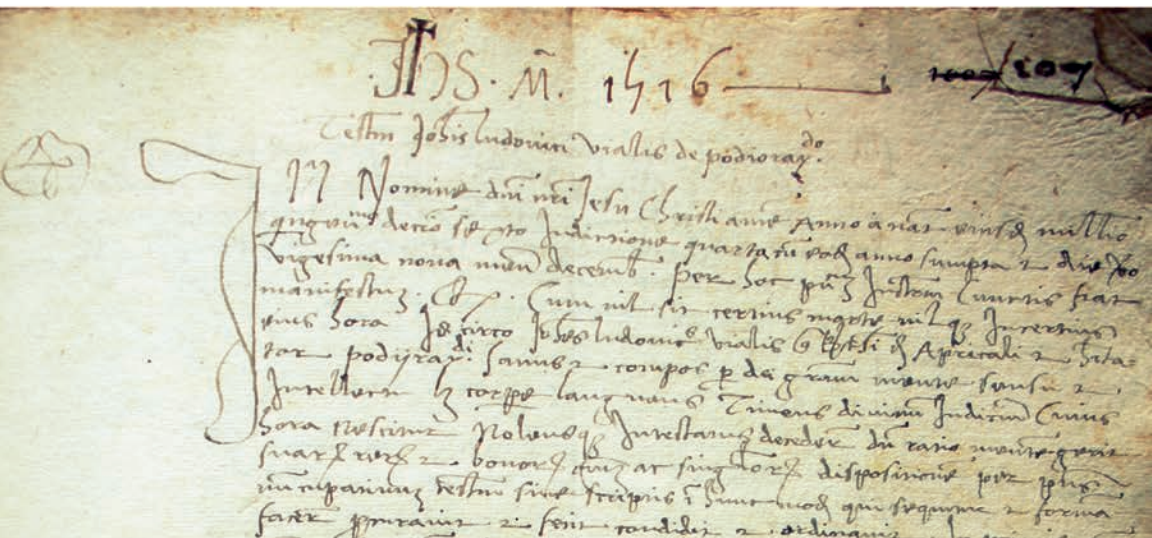 Jhs. M. 1516
1007 1007
Testm Johis ludovici vialis de podioray.do
IN Nomine dni nri Jesu Christi amen Anno a nat. eiusd millio
quingenmo decio sexto Indictione quarta cu eod anno sumpta et die vo
vigesima nona men decemb. per hoc pns Instrm Cunctis fiat
manifestum. Cum nil sit certius morte nilq Incertius
eius hora Idcirco Johes ludovic vialis Apricali et hita-
tor podijraydi. sanus et compos p dei gram mente sensu et
Intellectu lz corpe languens Timens divinum Iudiciu Cuius
hora nescitur Nolensq Intestatus decedere du ratio mente gerit
suar rer et bonor oim ac singlor dispositione per pns
nucupativum testm sine scriptis i hunc mod qui sequitur et forma
facer procuravit et fecit condidit et ordinavit